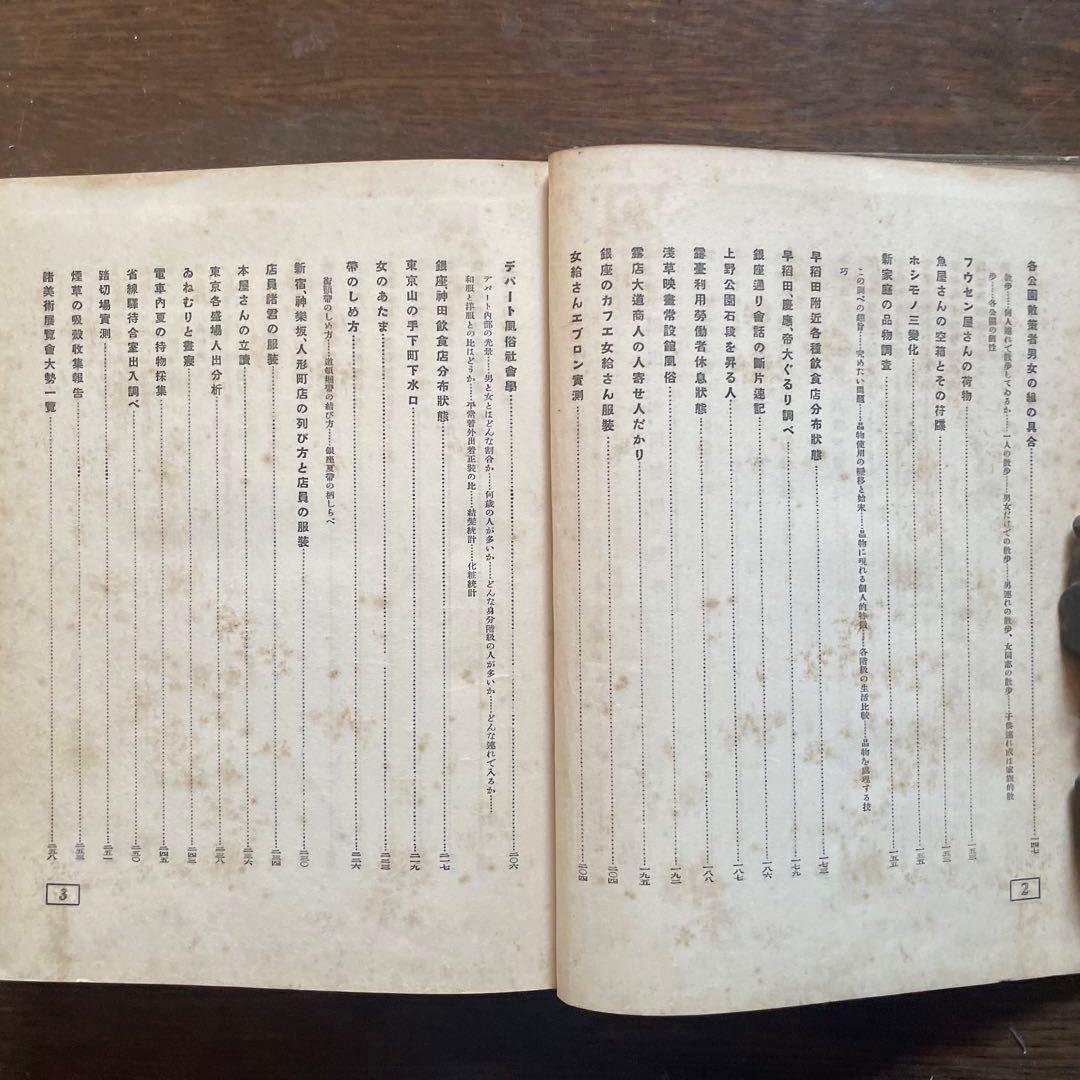 各公園散策者男女の組の具合……一四七
散歩……何人連れで散歩してゐるか……一人の散歩……男女だけでの散歩……男連れの散歩、女同志の散歩……子供連れ或は家族的散
歩……各公園の個性
フウセン屋さんの荷物……一五三
魚屋さんの空箱とその符牒……一五三
ホシモノ三變化……一五五
新家庭の品物調査……一五五
この調べの趣旨……究めたい問題……品物使用の變移と始末……品物に現れる個人的特徴……各階級の生活比較……品物を處理する技
巧
早稲田附近各種飲食店分布狀態……一七三
早稲田、慶應、帝大ぐるり調べ……一七九
銀座通り會話の斷片速記……一八六
上野公園石段を昇る人……一八七
露臺利用勞働者休息狀態……一八八
淺草映畫常設館風俗……一九二
露店大道商人の人寄せ人だかり……一九五
銀座のカフエ女給さん服裝……二〇四
女給さんエプロン實測……二〇四
2
デパート風俗社會學……二〇六
デパート内部の光景……男と女とはどんな割合か……何歳の人が多いか……どんな身分階級の人が多いか……どんな連れで入るか……
和服と洋服との比はどうか……平常着外出着正裝の比……結髪統計……化粧統計
銀座、神田飲食店分布狀態……二一七
東京山の手下町下水口……二一九
女のあたま……二二三
帶のしめ方……二二六
街頭帶のしめ方……道頓堀帶の結び方……銀座夏帶の柄しらべ
新宿、神樂坂、人形町店の列び方と店員の服裝……二三〇
店員諸君の服裝……二三四
本屋さんの立讀……二三六
東京各盛場人出分析……二三八
ゐねむりと晝寢……二四三
電車内夏の持物採集……二四五
省線驛待合室出入調べ……二五〇
踏切場實測……二五一
煙草の吸殻收集報告……二五三
諸美術展覽會大勢一覽……二五八
3